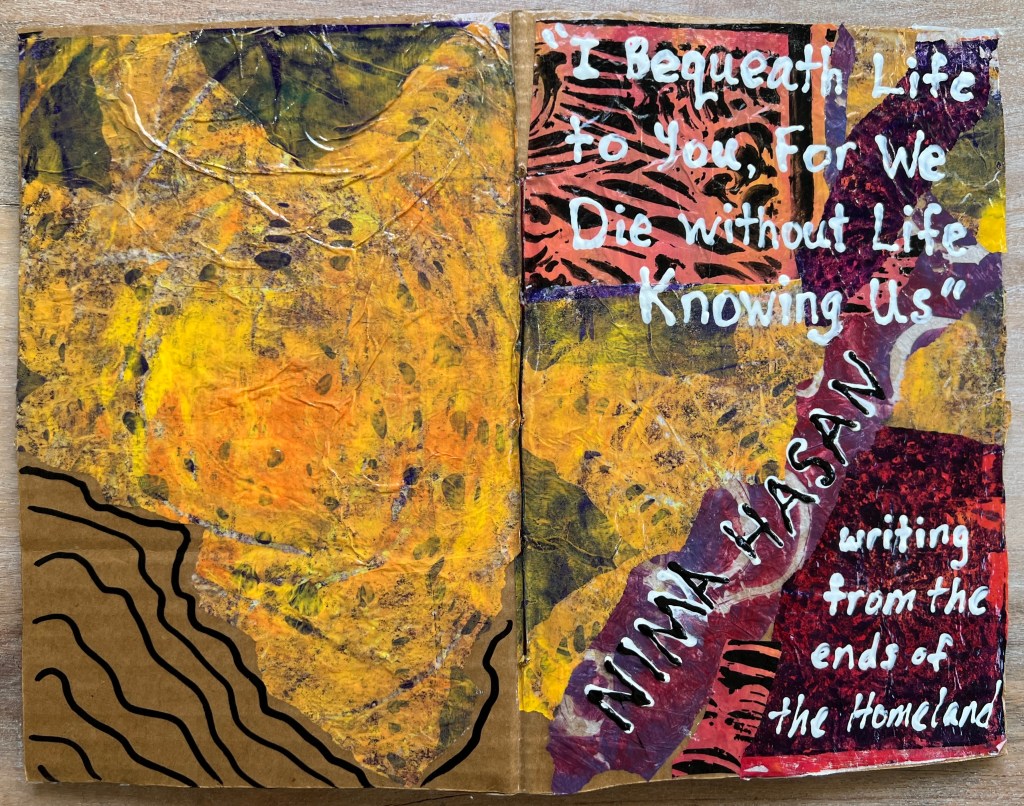 "I Bequeath Life
to You, For We
Die without Life
Knowing Us"
NIMA HASAN
writing
from the
ends of
the Homeland